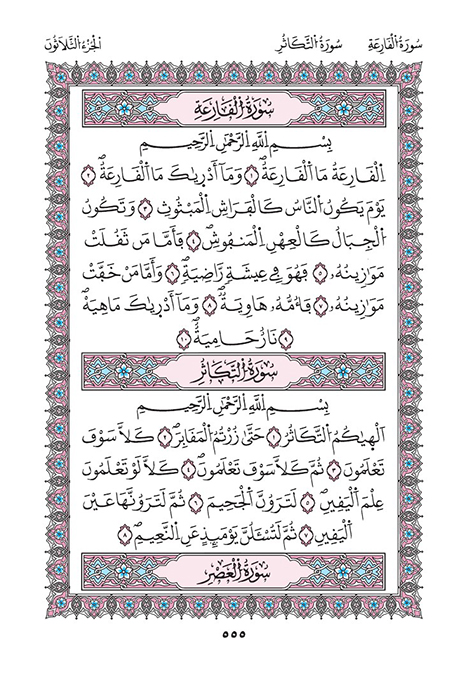 سُورَةُ اُ۬لْقَارِعَةِ سُورَةُ اُ۬لتَّكَاثُرِ اَ۬لْجُزْءُ اُ۬لثَّلَاثُونَ
سُورَةُ اُ۬لْقَارِعَةِ
بِسْمِ اِ۬للَّهِ اِ۬لرَّحْمَٰنِ اِ۬لرَّحِيمِ
اِ۬لْقَارِعَةُ مَا اَ۬لْقَارِعَةُۖ ١ وَمَآ أَدْر۪يٰكَ مَا اَ۬لْقَارِعَةُۖ ٢
يَوْمَ يَكُونُ اُ۬لنَّاسُ كَالْفَرَاشِ اِ۬لْمَبْثُوثِ ٣ وَتَكُونُ
اُ۬لْجِبَالُ كَالْعِهْنِ اِ۬لْمَنفُوشِۖ ٤ فَأَمَّا مَن ثَقُلَتْ
مَوَٰزِينُهُۥ ٥ فَهُوَ فِے عِيشَةٖ رَّاضِيَةٖۖ ٦ وَأَمَّا مَنْ خَفَّتْ
مَوَٰزِينُهُۥ ٧ فَأُمُّهُۥ هَاوِيَةٞۖ ٨ وَمَآ أَدْر۪يٰكَ مَاهِيَهْۖ
٩ نَارٌ حَامِيَةٞۖ ١٠
سُورَةُ اُ۬لتَّكَاثُرِ
بِسْمِ اِ۬للَّهِ اِ۬لرَّحْمَٰنِ اِ۬لرَّحِيمِ
أَلْه۪يٰكُمُ اُ۬لتَّكَاثُرُ ١ حَتَّىٰ زُرْتُمُ اُ۬لْمَقَابِرَۖ ٢ كَلَّا سَوْفَ
تَعْلَمُونَ ٣ ثُمَّ كَلَّا سَوْفَ تَعْلَمُونَۖ ٤ كَلَّا لَوْ تَعْلَمُونَ
عِلْمَ اَ۬لْيَقِينِۖ ٥ لَتَرَوُنَّ اَ۬لْجَحِيمَ ٦ ثُمَّ لَتَرَوُنَّهَا عَيْنَ
اَ۬لْيَقِينِۖ ٧ ثُمَّ لَتُسْـَٔلُنَّ يَوْمَئِذٍ عَنِ اِ۬لنَّعِيمِۖ ٨
سُورَةُ اُ۬لْعَصْرِ
٥٥٥